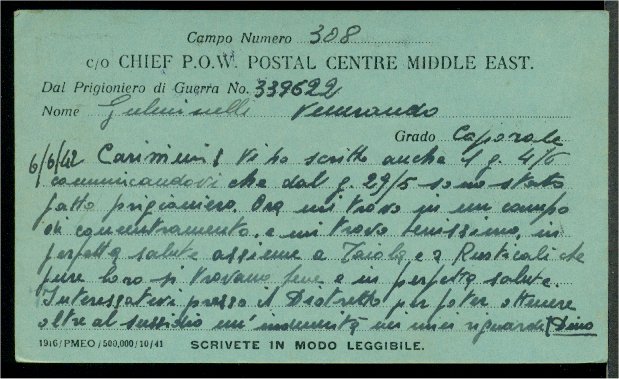 Campo Numero 308
c/o CHIEF P.O.W. POSTAL CENTRE MIDDLE EAST.
Dal Prigioniero di Guerra No. 339622
Nome Gulminelli Venerando
Grado Caporale
6/6/42 Carissimi! Vi ho scritto anche il g. 4/6
comunicandovi che dal g. 29/5 sono stato
fatto prigioniero. Ora mi trovo in un campo
di concentramento, e mi trovo benissimo, in
perfetta salute assieme a e a Rusticali che
pure loro si trovano bene e in perfetta salute.
Interessatevi presso il Distretto per poter ottenere
oltre al sussidio un'indennità nei miei riguardi Dino
1916/PMEO/500,000/10/41 SCRIVETE IN MODO LEGGIBILE.